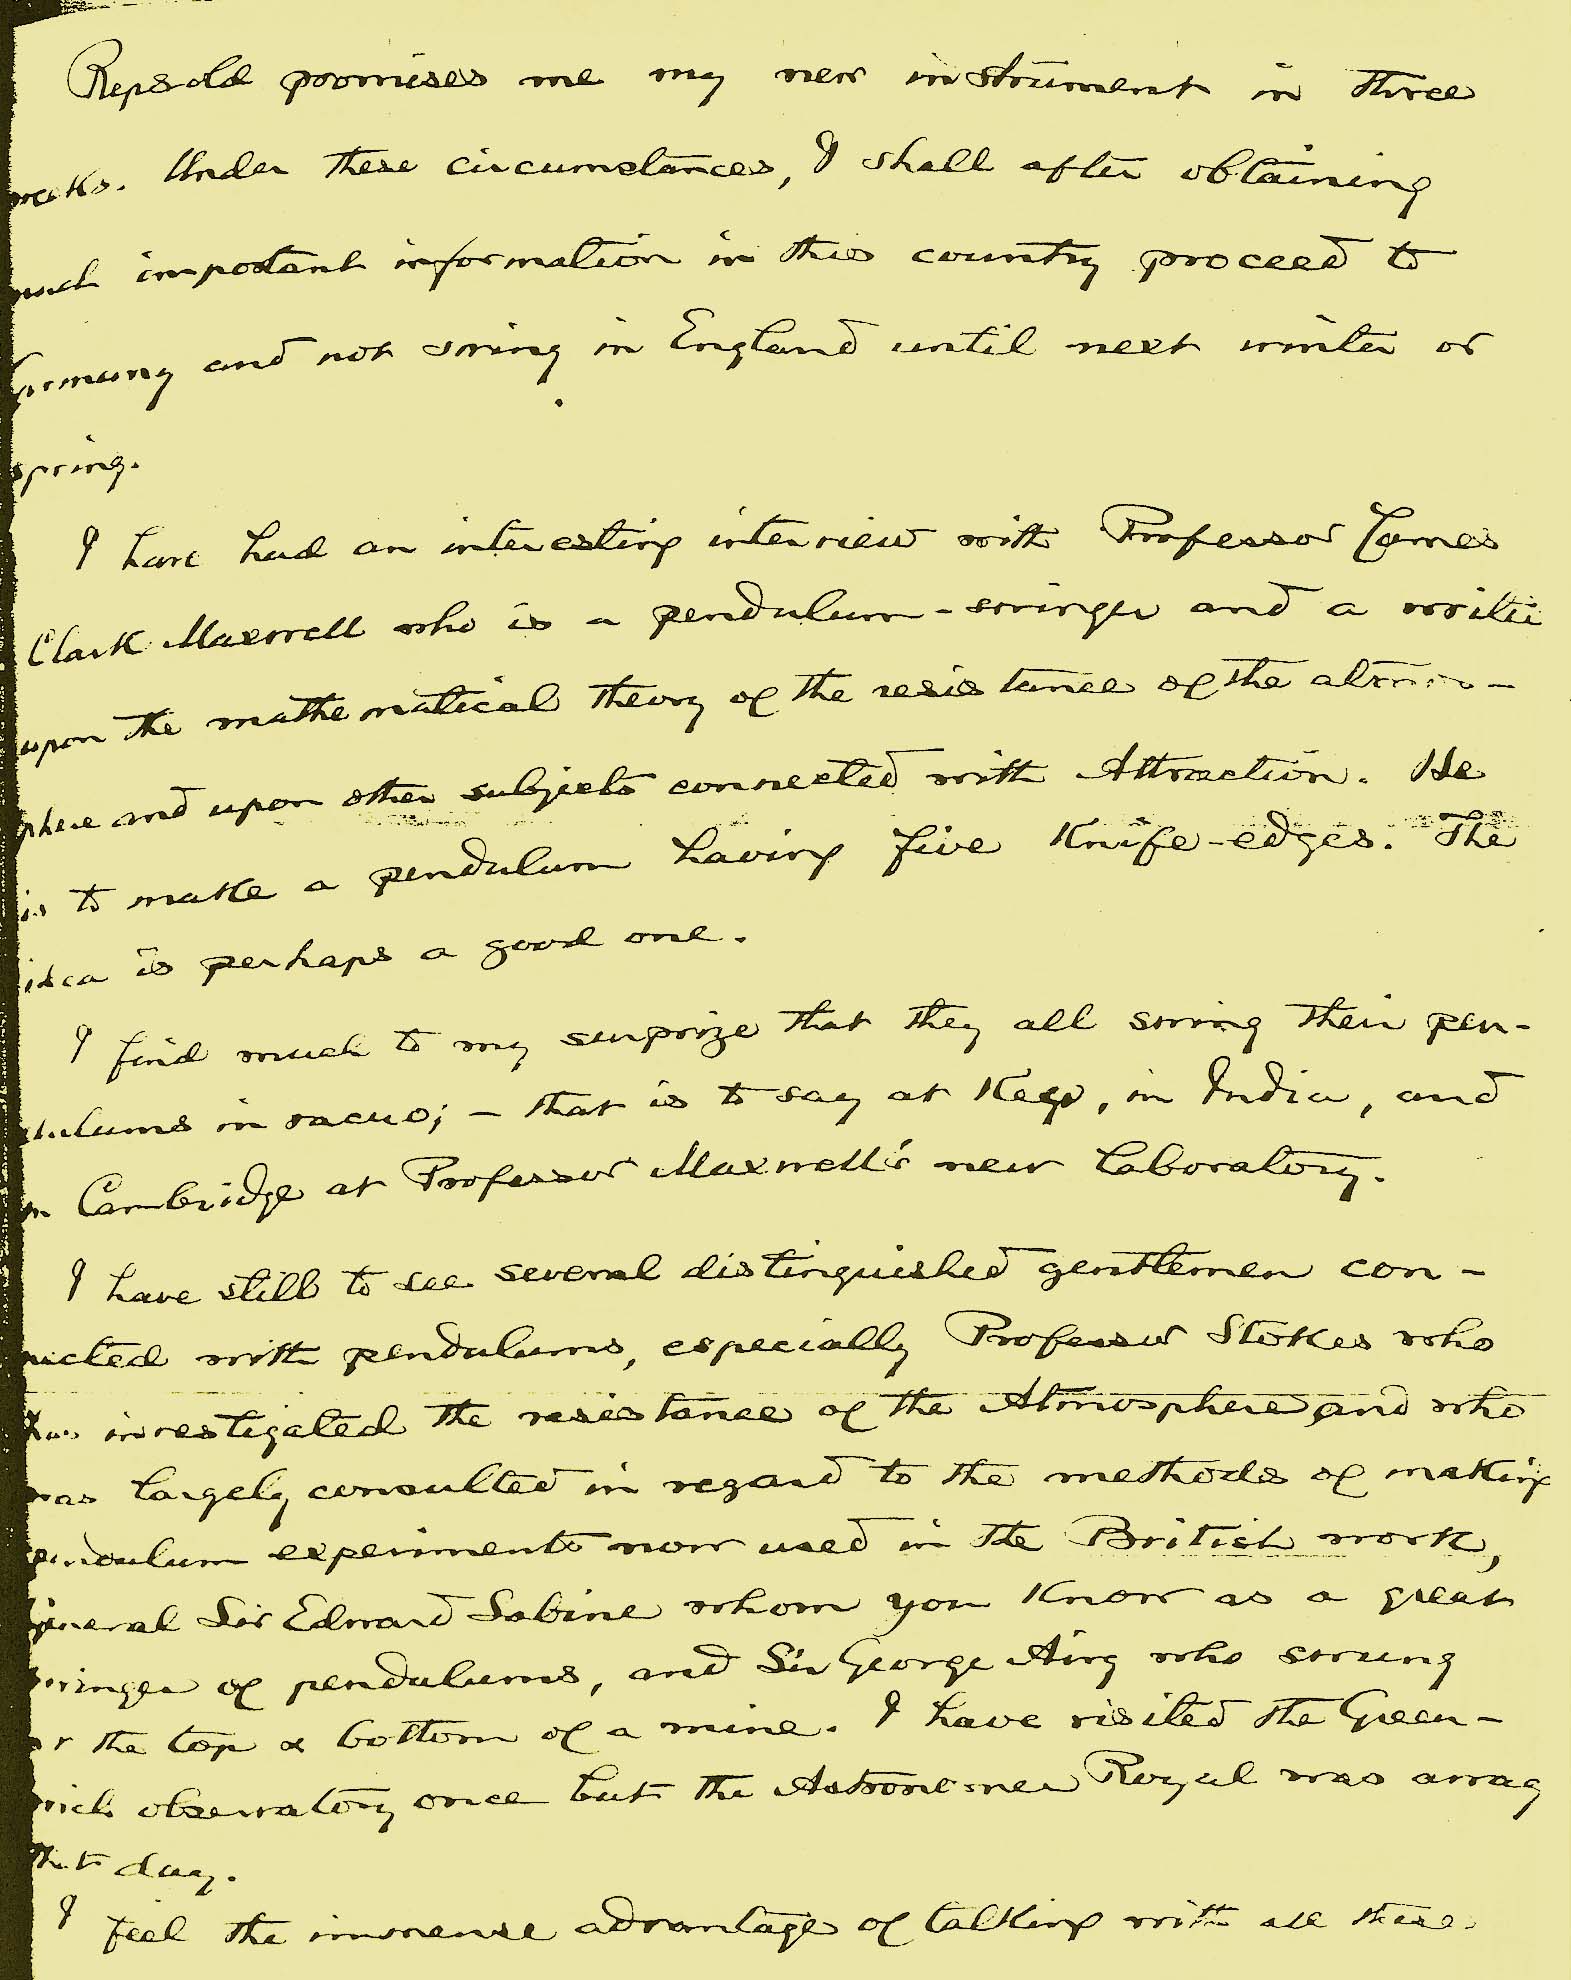 Repsold promises me my new instrument in three
weeks. Under these circumstances, I shall after obtaining
much important information in this country proceed to
Germany and not swing in England until next winter or
spring.
I have had an interesting interview with Professor James
Clark Maxwell who is a pendulum-swinger and a writer
upon the mathematical theory of the resistance of the atmos-
phere and upon other subjects connected with Attraction. He
is to make a pendulum having five Knife-edges. The
idea is perhaps a good one.
I find much to my surprize that they all swing their pen-
dulums in vacuo; - that is to say at Kew, in India, and
in Cambridge at Professor Maxwell's new laboratory.
I have still to see several distinguished gentlemen con-
nected with pendulums, especially Professor Stokes who
has investigated the resistance of the Atmosphere and who
was largely consulted in regard to the methods of making
pendulum experiments now used in the British work,
General Sir Edward Sabine whom you Know as a great
swinger of pendulums, and Sir George Airy who swung
at the top & bottom of a mine. I have visited the Green-
wich observatory once but the Astronomer Royal was away
that day.
I feel the immense advantage of talking with all these